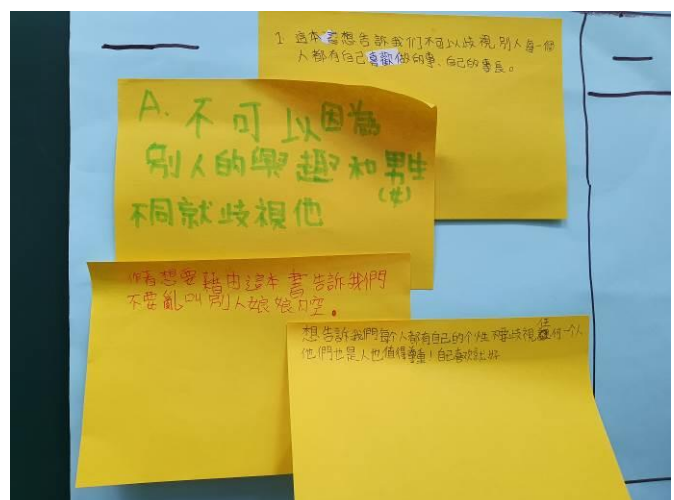 1 這本書想告訴我们不可以歧視別人每一個
人都有自己喜歡做的事、自己的專長。
A. 不可以因為
別人的興趣和男生
(女)
不同就歧視他
作者想要藉由這本書告訴我們
不要亂叫別人娘娘力空。
想告訴我們每个人都有自己的个性不要歧視任何一个人
他們也是人也值得尊重!自己喜欢就好